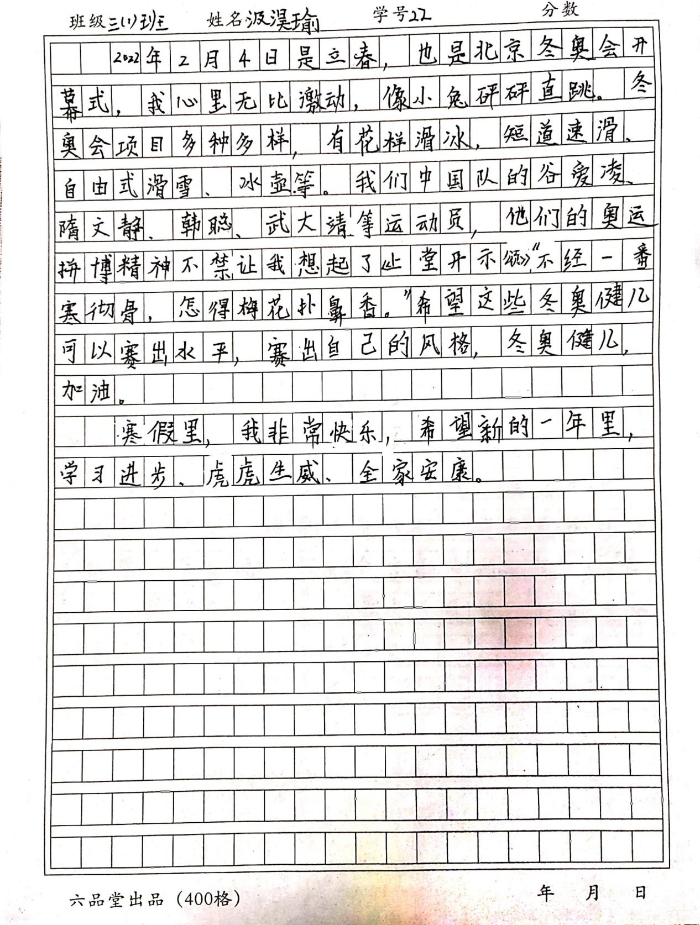 班级三(1)班 姓名汲淏瑜 学号22 分数
2022年2月4日是立春，也是北京冬奥会开
幕式，我心里无比激动，像小兔砰砰直跳。冬
奥会项目多种多样，有花样滑冰，短道速滑、
自由式滑雪、冰壶等。我们中国队的谷爱凌、
隋文静、韩聪、武大靖等运动员，他们的奥运
拼博精神不禁让我想起了《上堂开示颂》“不经一番
寒彻骨，怎得梅花扑鼻香。”希望这些冬奥健儿
可以赛出水平，赛出自己的风格，冬奥健儿，
加油。
寒假里，我非常快乐，希望新的一年里，
学习进步、虎虎生威、全家安康。
六品堂出品（400格） 年 月 日